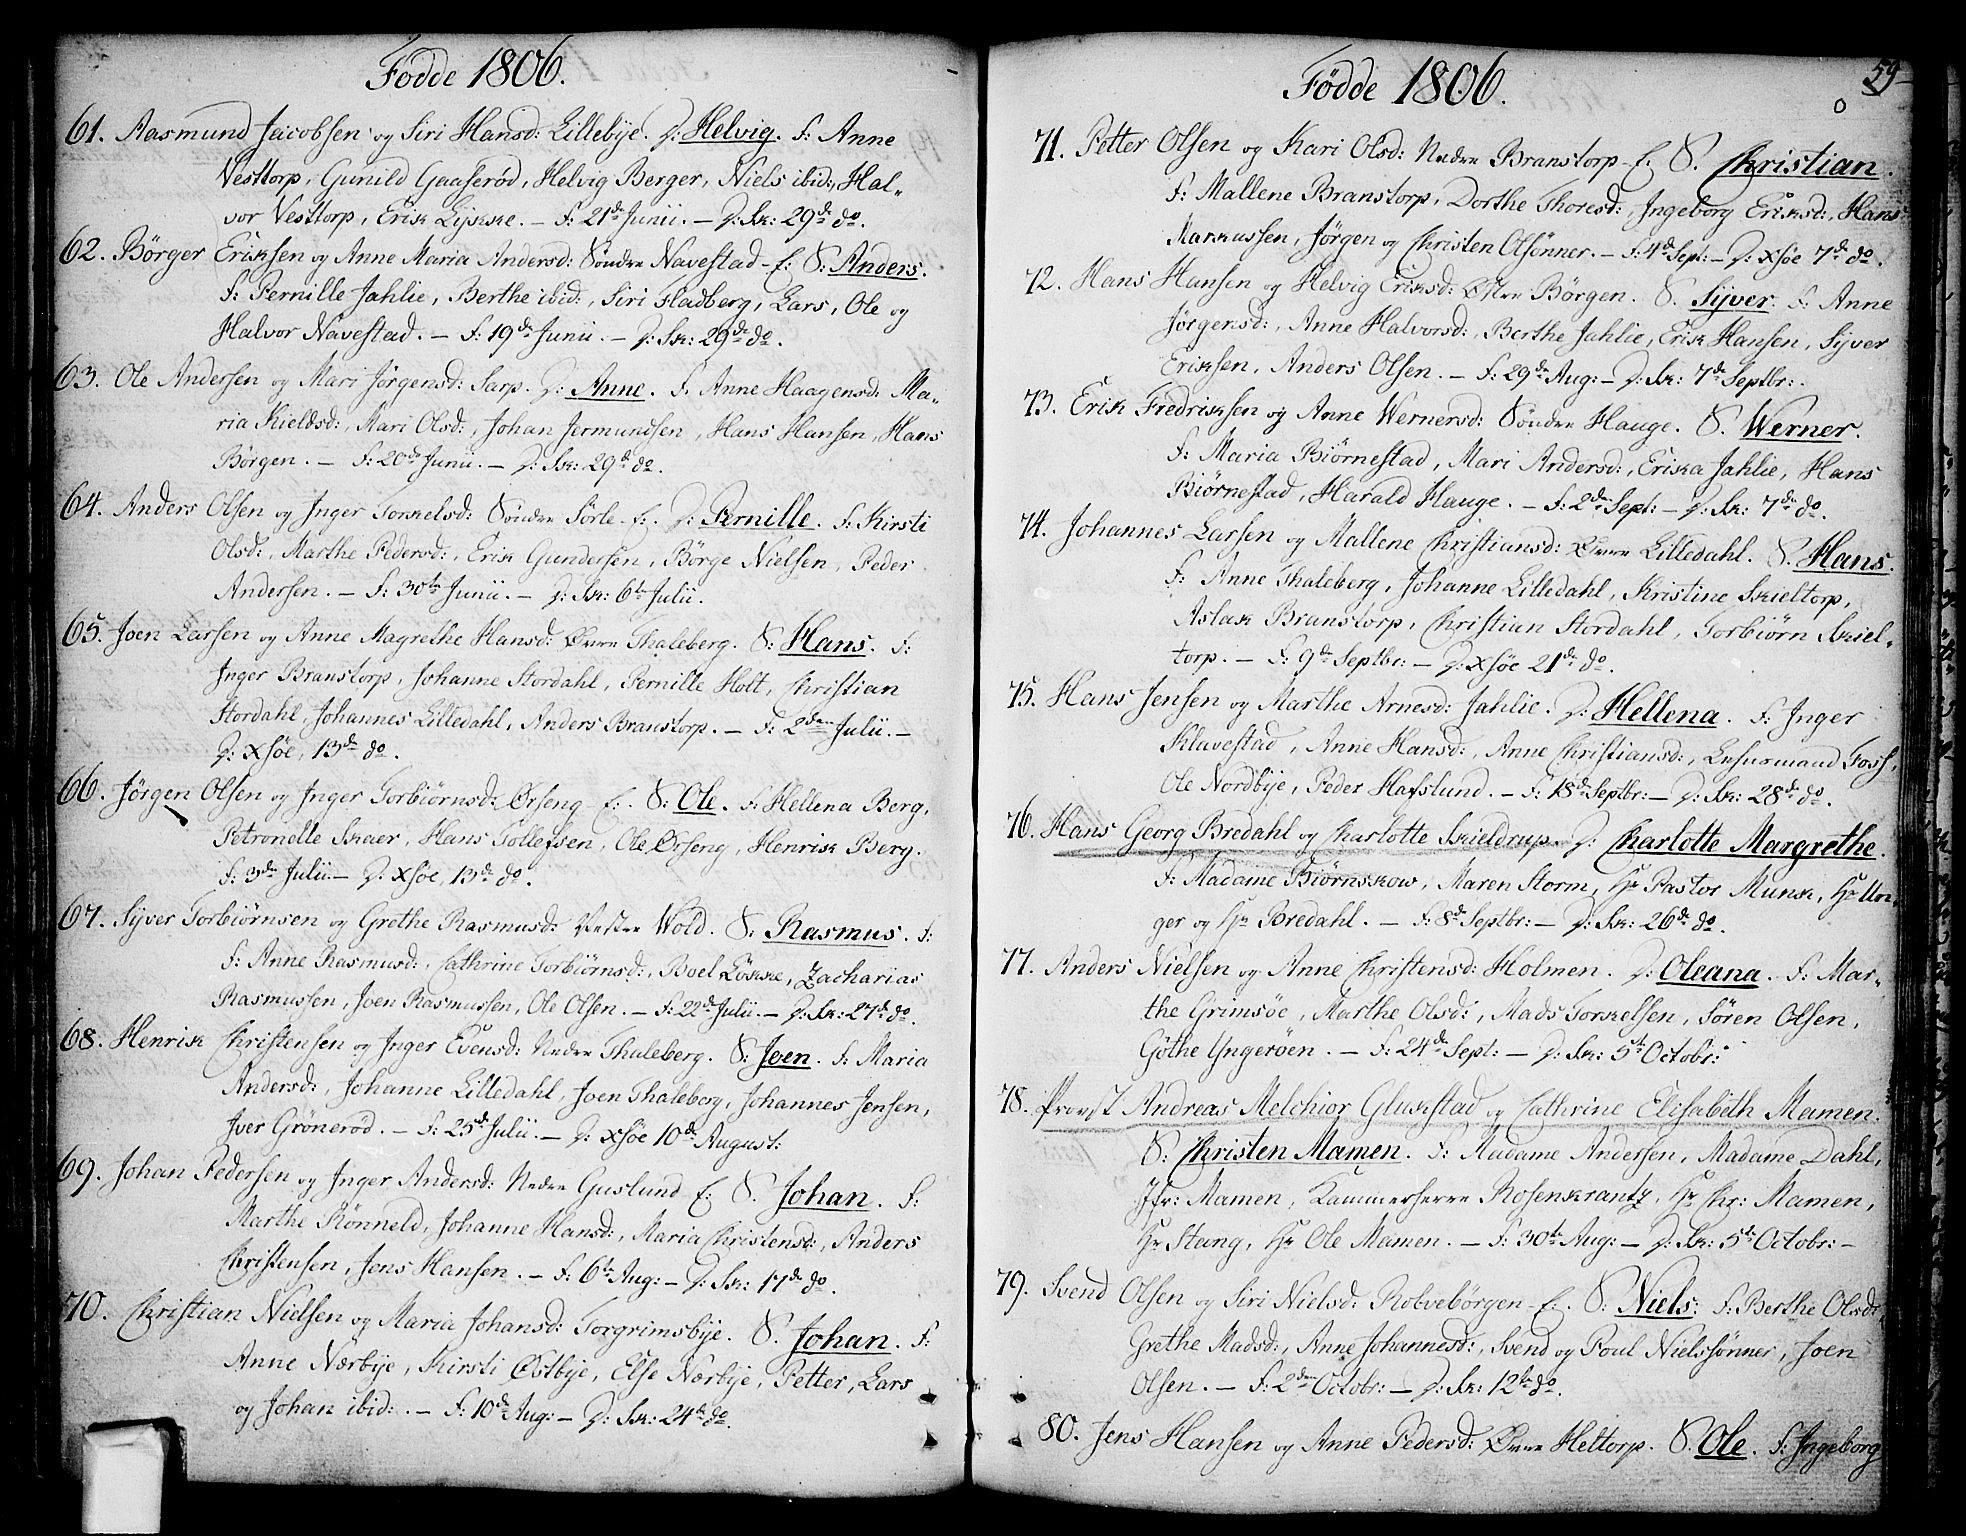 Fødde 1806.
61. Aasmund Jacobsen og Siri Hansd: Lillebÿe. D: Helvig. F: Anne
Vesttorp, Gunild Gaaserød, Helvig Berger, Niels ibid:, Hal-
vor Vesttorp, Erik Lÿkke. – F: 21de Junii. – D: Sk: 29de do.
62. Børger Eriksen og Anne Maria Andersd: Søndre Navestad – E: S: Anders.
F: Pernille Jahlie, Berthe ibid:, Siri Fladberg, Lars, Ole og
Halvor Navestad. – F: 19de Junii. – D: Sk: 29de do.
63. Ole Andersen og Mari Jørgensd: Sarp. D: Anne. F: Anne Haagensd: Ma-
ria Kieldsd:, Mari Olsd:, Johan Jermundsen, Hans Hansen, Hans
Børgen. – F: 20de Junii. – D: Sk: 29de do.
64. Anders Olsen og Inger Torkelsd: Søndre Sørle – E: D: Pernille. F: Kirsti
Olsd:, Marthe Pedersd:, Erik Gundersen, Børge Nielsen, Peder
Andersen. – F: 30te Junii. – D: Sk: 6te Julii.
65. Joen Larsen og Anne Magrethe Hansd: Øvre Thaleberg. S: Hans. F:
Inger Branstorp, Johanne Stordahl, Pernille Holt, Christian
Stordahl, Johannes Lilledahl, Anders Branstorp. – F: 2den Julii. –
D: xsöe, 13de do.
66. Jørgen Olsen og Inger Torbiørnsd: Ørseng – E: S: Ole. F: Hellena Berg,
Petronelle Skaer, Hans Tollefsen, Ole Ørseng, Henrik Berg.
F: 3de Julii – D: xsöe, 13de do.
67. Sÿver Torbiørnsen og Grethe Rasmusd: Vestre Wold. S: Rasmus. F:
F: Anne Rasmusd:, Cathrine Torbiørnsd:, Boel Løkke, Zacharias
Rasmussen, Joen Rasmussen, Ole Olsen. – F: 22de Julii. – D: Sk: 27de do.
68. Henrik Christensen og Inger Evensd: Nedre Thaleberg. S: Joen. F: Maria
Andersd:, Johanne Lilledahl, Joen Thaleberg, Johannes Jensen,
Iver Grønerød. – F: 25de Julii. – D: xsöe 10de August:
69. Johan Pedersen og Inger Andersd: Nedre Guslund E: S. Johan. F:
Marthe Rønneld, Johanne Hansd:, Maria Christensd:, Anders
Christensen, Jens Hansen. – F: 6te Aug: – D: Sk: 17de do.
70. Christian Nielsen og Maria Johansd: Torgrimsbÿe. S. Johan. F:
Anne Nærbÿe, Kirsti Østbÿe, Else Nærbÿe, Petter, Lars
og Johan ibid: . – F: 10de Aug: – D: Sk: 24de do.
59
Fødde 1806.
71. Petter Olsen og Kari Olsd: Nedre Branstorp – E. S. Christian.
F: Mallene Branstorp, Dorthe Thoresd:, Ingeborg Eriksd:, Hans
Markussen, Jørgen og Christen Olsønner. – F: 4de Sept: – D: xsöe 7de do.
72. Hans Hansen og Helvig Eriksd: Østre Børgen. S. Sÿver. F: Anne
Jørgensd:, Anne Halvorsd:, Berthe Jahlie, Erik Hansen, Sÿver
Eriksen, Anders Olsen. – F: 29de Aug: – D: Sk: 7de Septbr:.
73. Erik Fredriksen og Anne Wernersd: Søndre Hauge. S. Werner.
F: Maria Biørnestad, Mari Andersd:, Erika Jahlie, Hans
Biørnestad, Harald Hauge. – F: 2den Sept: – D: Sk: 7de do.
74. Johannes Larsen og Mallene Christiansd: Øvre Lilledahl. S. Hans.
F: Anne Thaleberg, Johanne Lilledahl, Kristine Skieltorp,
Aslak Branstorp, Christian Stordahl, Torbiørn Skiel-
torp. – F: 9de Septbr: – D: xsöe 21de do.
75. Hans Jensen og Marthe Arnesd: Jahlie. D: Hellena. F: Inger
Kluvestad, Anne Hansd:, Anne Christiansd:, Lensmand Foss,
Ole Nordbÿe, Peder Hafslund. – F: 18de Septbr: – D: Sk: 28de do.
76. Hans Georg Bredahl og Charlotte Skieldrup. D: Charlotte Margrethe.
F: Madame Biørnskow, Maren Storm, Hr Pastor Munk, Hr Un-
ger og Hr Bredahl. – F: 8de Septbr: – D: Sk: 26de do.
77. Anders Nielsen og Anne Christensd: Holmen. D: Oleana. F: Mar-
the Grimsøe, Marthe Olsd:, Mads Torkelsen, Søren Olsen,
Gøthe Yngerøen. – F: 24de Sept: – D: Sk: 5te Octobr:
78. Provst Andreas Melchior Glukstad og Cathrine Elisabeth Mamen.
S: Christen Mamen. F: Madame Andersen, Madame Dahl,
Jfr: Mamen, Kammerherre Rosenkrantz, Hr Chr: Mamen,
Hr Stang, Hr Ole Mamen. – F: 30te Aug: – D: Sk: 5te Octobr: –
79. Svend Olsen og Siri Nielsd: Robvebørgen – E: S: Niels: F: Berthe Olsd:,
Grethe Madsd:, Anne Johannesd:, Svend og Poul Nielssønner, Joen
Olsen. – F: 2den Octobr: – D: Sk: 12te do.
80. Jens Hansen og Anne Pedersd: Øvre Heltorp. S. Ole. F: Ingeborg